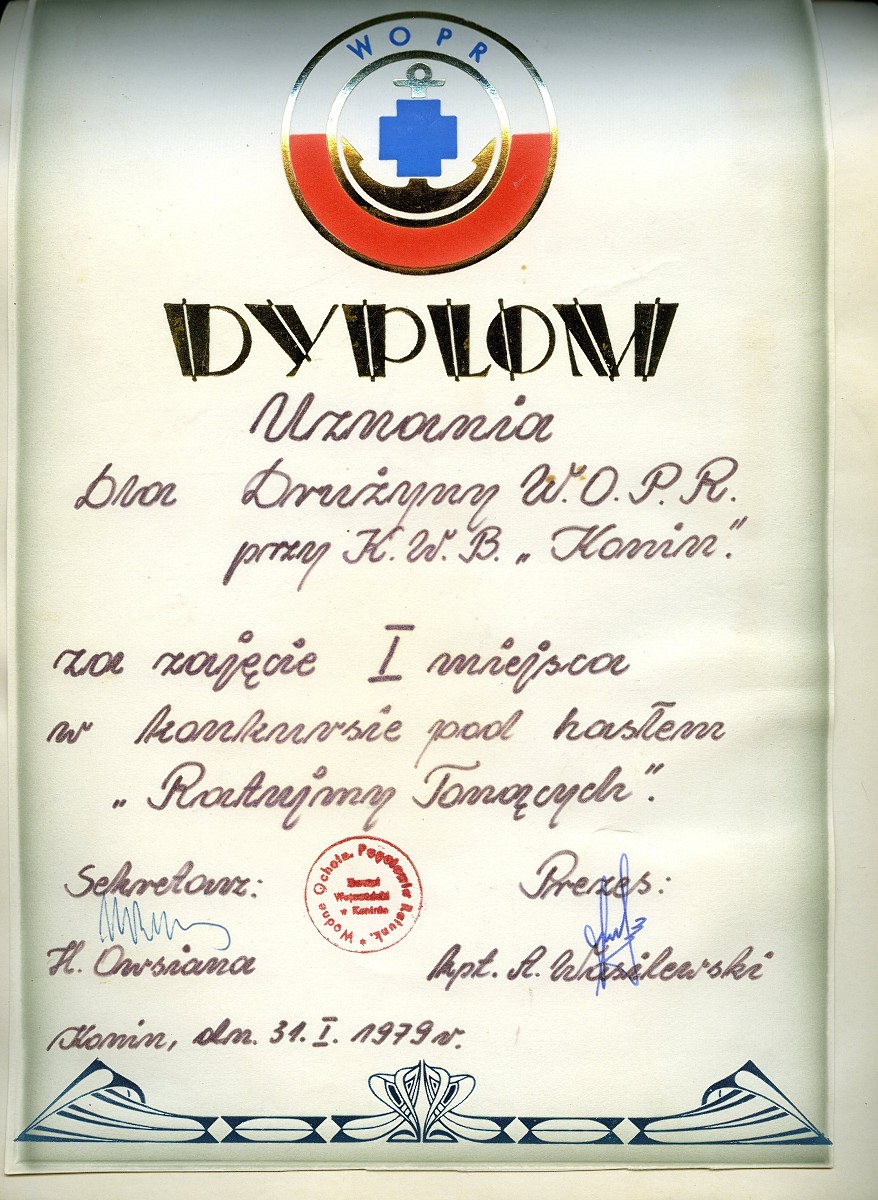 WOPR
DYPLOM
Uznania
Dla Drużyny W.O.P.R.
przy K.W.B. „Konin”.
za zajęcie I miejsca
w konkursie pod hasłem
„Ratujmy Tonących”.
Sekretarz:
Prezes:
Wodne Ochotn. Pogotowie Ratunk. *
Zarząd
Wojewódzki
w Koninie
H. Owsiana
kpt. A. Wasilewski
Konin, dn. 31. I. 1979 r.